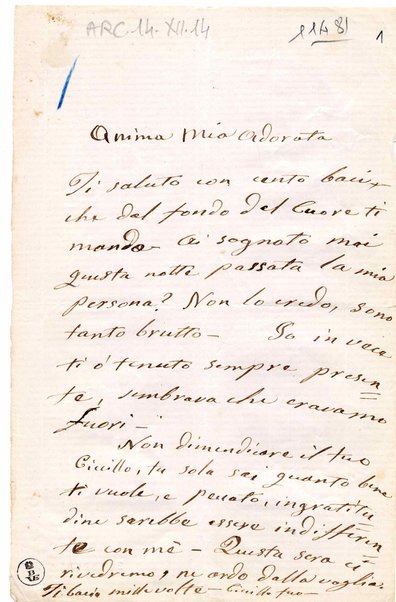 ARC. 14. XII. 14
1148
1
Anima Mia adorata
Ti saluto con cento baci,
che dal fondo del Cuore ti
mando- Ai sognato mai
questa notte passata la mia
persona? Non lo credo, sono
tanto brutto- Io in vece
ti ó tenuto sempre presen=
te, sembrava che eravamo
fuori-
Non dimendicare il tuo
Cicillo, tu sola sai quanto bene
ti vuole, e pecato, ingratitu
dine sarebbe essere indifferen
te con mè- Questa sera ci
rivedremo, ne ardo dalla voglia.
Ti bacio mille volte- Cicillo tuo-